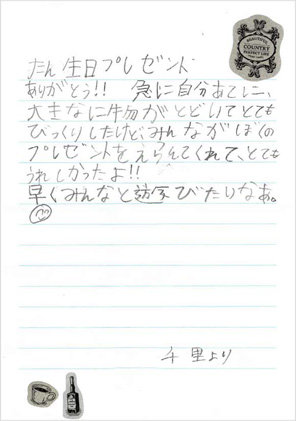 BEAUTIFUL
COUNTRY
PERFECT LIFE
たん生日プレゼント
ありがとう!! 急に自分あてに、
大きなに物がとどいてとても
びっくりしたけど、みんながぼくの
プレゼントをえらんでくれて、とても
うれしかったよ!!
早くみんなと遊びたいなあ。
千里より